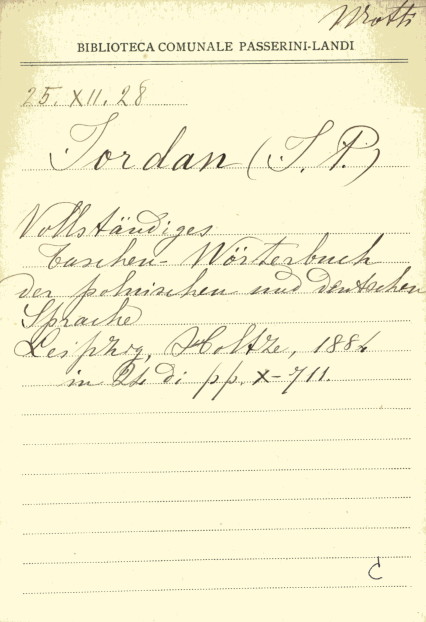 BIBLIOTECA COMUNALE PASSERINI-LANDI
25. XII. 28
Jordan (J. P.)
Vollständiges
Taschen-Wörterbuch
der polnischen und deutschen
Sprache
Leipzig, Holtze,
in 24 di pp. X-711.
C